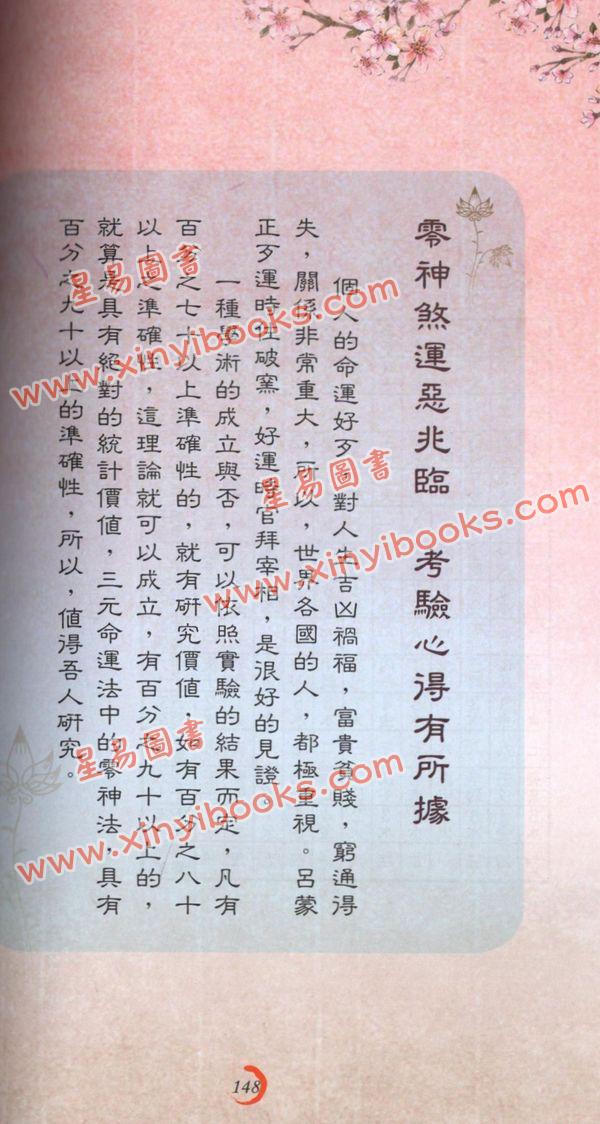 零神煞運惡兆臨 考驗心得有所據
個人的命運好歹，對人生吉凶禍福，富貴貧賤，窮通得
失，關係非常重大，所以，世界各國的人，都極重視。呂蒙
正歹運時住破窯，好運時官拜宰相，是很好的見證。
一種學術的成立與否，可以依照實驗的結果而定，凡有
百分之七十以上準確性的，就有研究價值，如有百分之八十
以上之準確性，這理論就可以成立，有百分之九十以上的，
就算是具有絕對的統計價值，三元命運法中的零神法，具有
百分之九十以上的準確性，所以，值得吾人研究。
星易圖書
www.xinyibooks.com
星易圖書
www.xinyibooks.com
星易圖書
www.xinyibooks.com
148